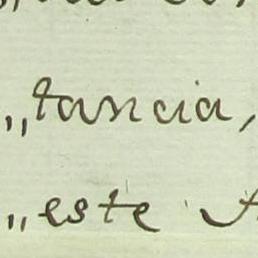 „tancia,
„este